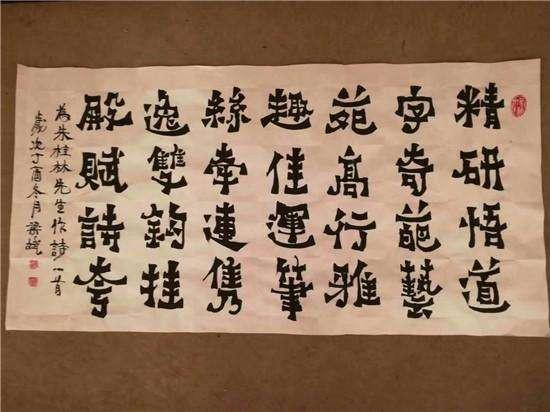 精研悟道
字奇葩藝
苑高行雅
趣佳運筆
絲牽連隽
逸雙鉤挂
殿賦詩夸
為朱桂林先生作詩一首
歲次丁酉冬月